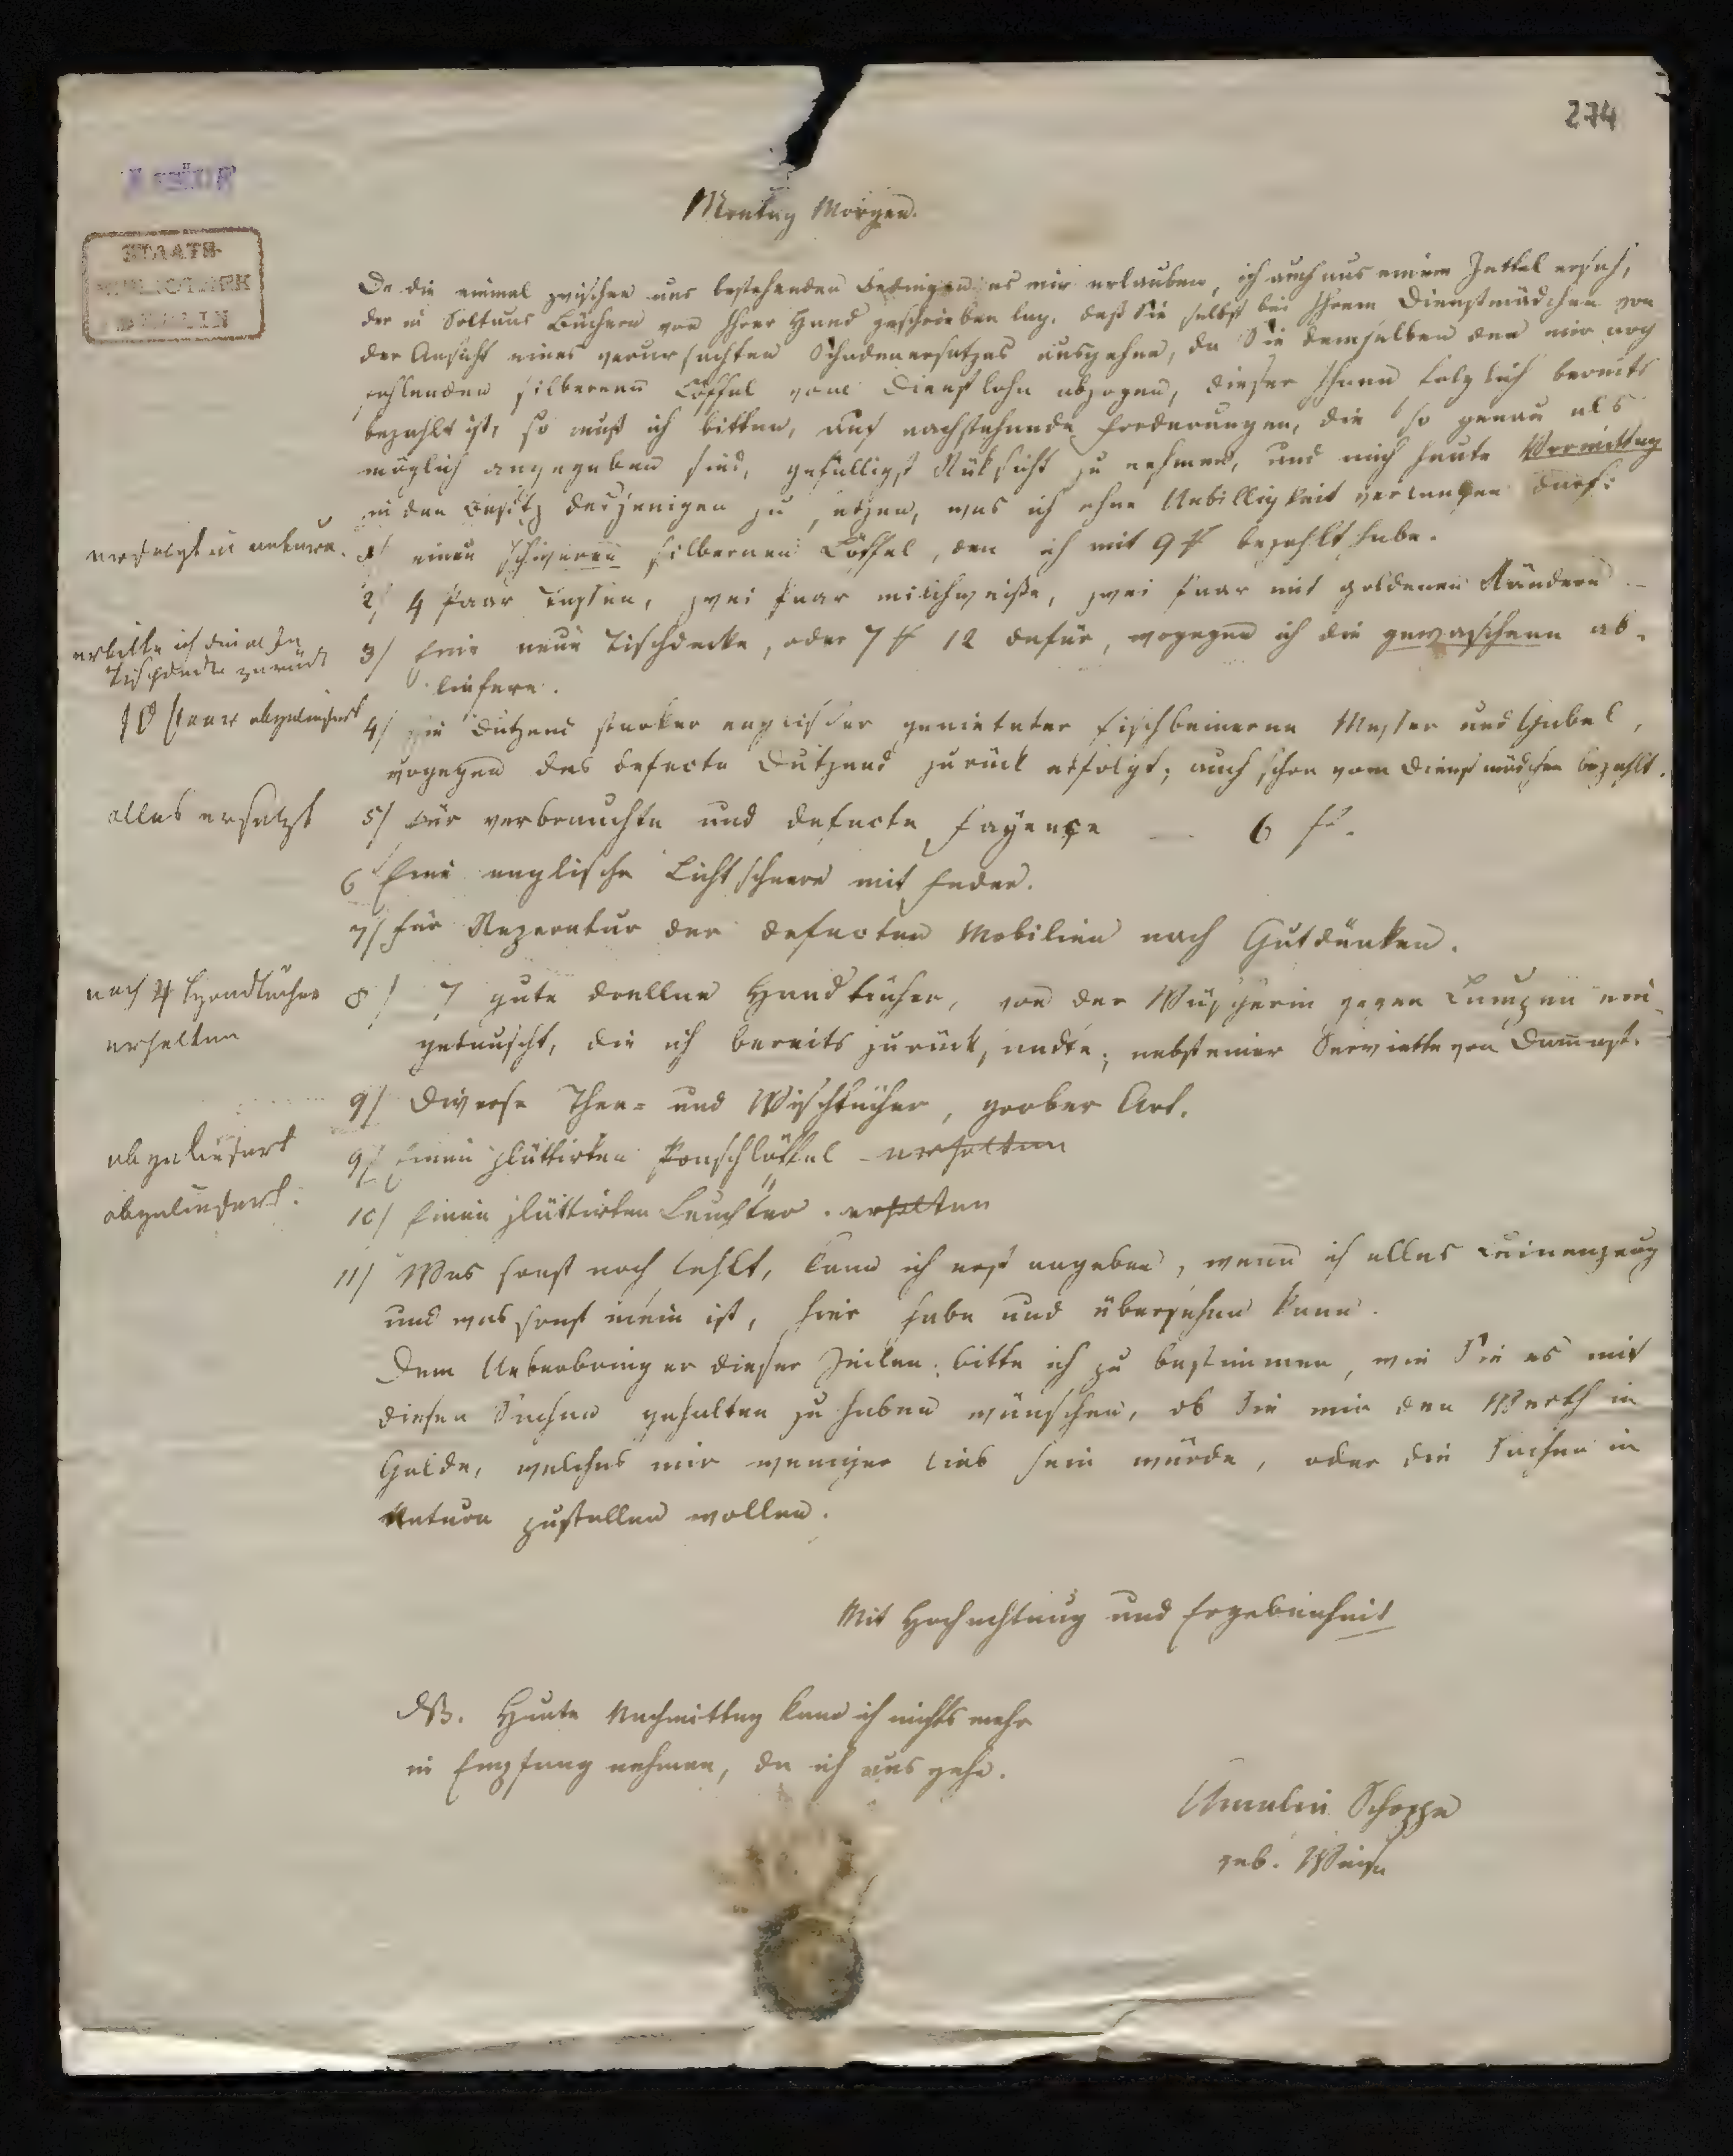 274
STAATS-
BIBLIOTHEK
BERLIN
Montag Morgen.
Da die einmal zwischen uns bestehenden es mir erlauben, ich auch aus einem Zettel ersah,
der in Soltaus Büchern von Ihrer Hand geschrieben lag, daß Sie selbst bei Ihrem Dienstmädchen von
der Ansicht eines verursachten Schadenersatzes ausgehen, da Sie demselben den mir noch
fehlenden silbernen Löffel vom Dienstlohn abzogen, dieser Ihnen folglich bereits
bezahlt ist, so muß ich bitten, auf nachstehende Forderungen, die so genau als
möglich angegeben sind, gefälligst Rüksicht zu nehmen, und mich heute Vormittag
in den Besitz desjenigen zu setzen, was ich ohne Unbilligkeit verlangen darf:
erfolgt in natura.
1/ einen schweren silbernen Löffel, den ich mit 9 bezahlt habe.
2/ 4 Paar Tassen, zwei Paar milchweiße, zwei Paar mit goldenen Rändern –
erbitte ich die alte
Tischdecke zurück
3/ Eine neue Tischdecke, oder 7 12 dafür, wogegen ich die gewaschene ab-
liefere.
10 Paar abgeliefert
4/ ein Dutzend starker englischer genieteter fischbeinerne Messer und Gabel,
wogegen das defecte Dutzend zurück erfolgt; auch schon vom Dienstmädchen bezahlt.
alles ersetzt
5/ Für verbrauchte und defecte Fayençe — 6
6 Eine englische Lichtscheere mit Feder.
7/ Für Reperatur der defecten Mobilien nach Gutdünken.
noch 4 Handtücher
erhalten
8/ 7 gute drellne Handtücher, von der Wäscherin gegen Lumpen ein-
getauscht, die ich bereits zurück sendte; nebst einer Serviette von Dammast.
9/ Diverse Thee- und Wischtücher, grober Art.
abgeliefert
9/ Einen plattirten Ponschlöffel – erhalten
abgeliefert.
10/ Einen plattirten Leuchter. erhalten
11/ Was sonst noch fehlt, kann ich erst angeben, wenn ich alles Leinenzeug
und was sonst mein ist, hier habe und übersehen kann.
Dem Ueberbringer dieser Zeilen bitte ich zu bestimmen, wie Sie es mit
diesen Sachen gehalten zu haben wünschen, ob Sie mir den Werth in
Gelde, welches mir weniger lieb sein würde, oder die Sachen in
Natura zustellen wollen.
Mit Hochachtung und Ergebenheit
Heute Nachmittag kann ich nichts mehr
in Empfang nehmen, da ich ausgehe.
Amalia Schoppe
geb. Weise